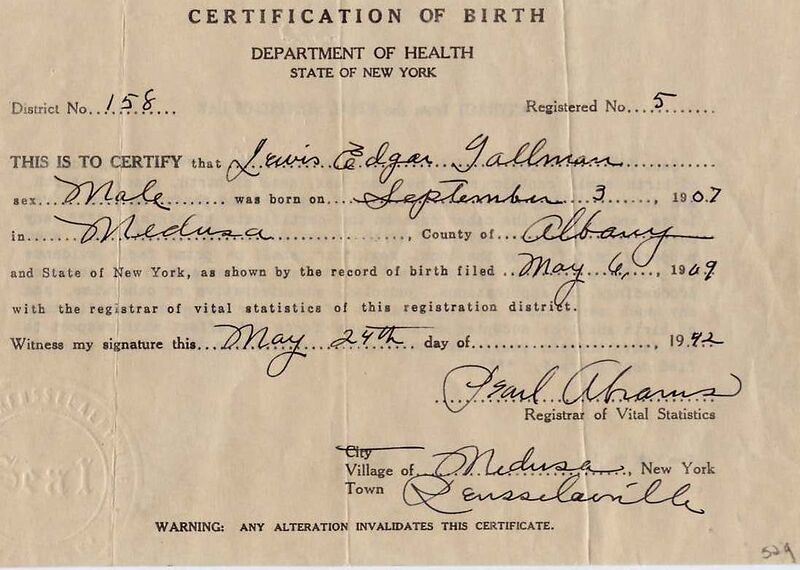 CERTIFICATION OF BIRTH
DEPARTMENT OF HEALTH
STATE OF NEW YORK
District No. 158 Registered No. 5
THIS IS TO CERTIFY that Lewis Edgar Tallman
sex Male was born on September 3, 1907
in Medusa, County of Albany
and State of New York, as shown by the record of birth filed May 6, 1909
with the registrar of vital statistics of this registration district.
Witness my signature this May 29th day of, 1942
Pearl Abrams
Registrar of Vital Statistics
City
Village of Medusa, New York
Town Rensselaville
WARNING: ANY ALTERATION INVALIDATES THIS CERTIFICATE.
529